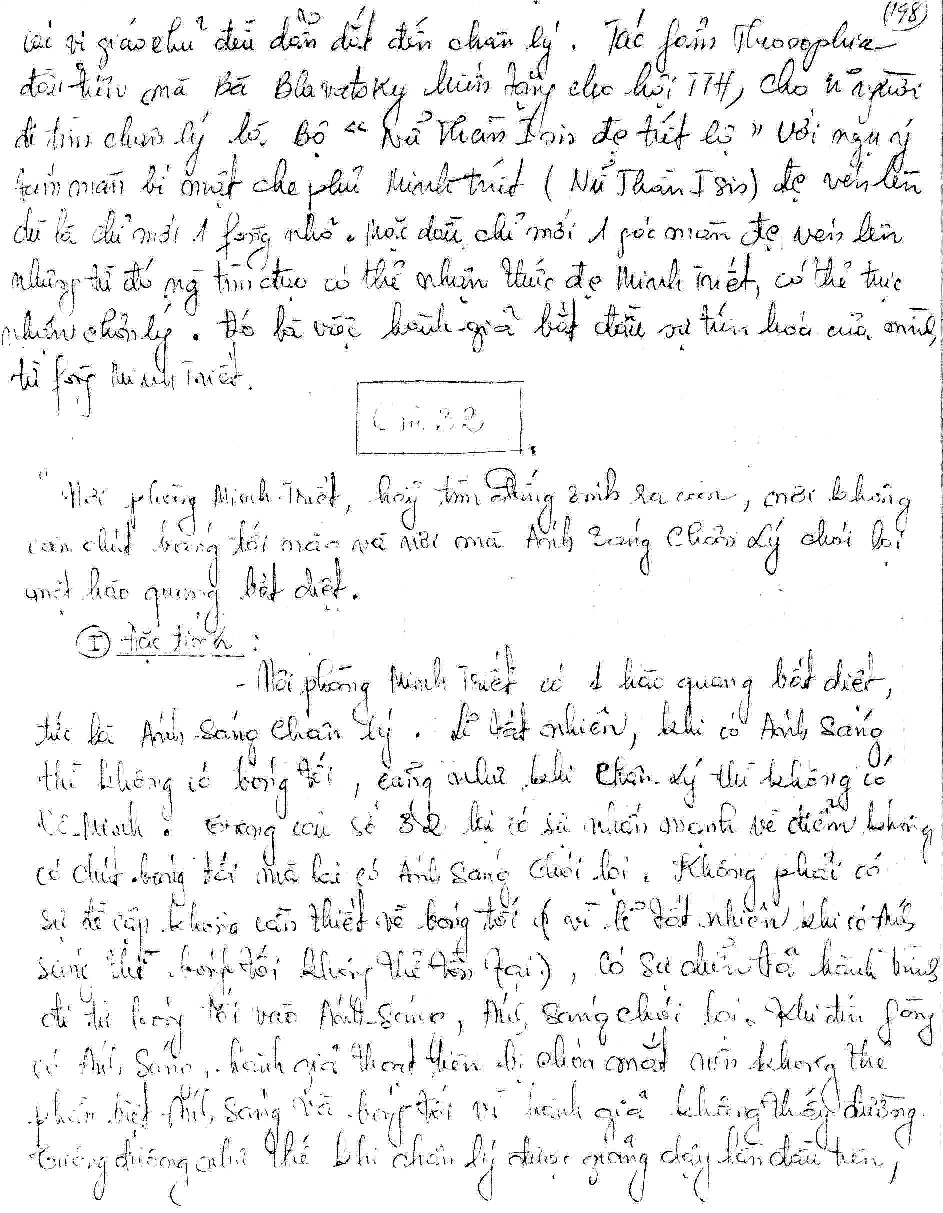 (198)
các vị giáo chủ đều dẫn dắt đến chân lý. Tác fẩm Theosophia
đầu tiên mà Bà Blavatsky hiến tặng cho hội TTH, cho n~ người
đi tìm chân lý là Bộ “ Nữ Thần Isis đc tiết lộ ” với ngụ ý
tấm màn bí mật che phủ Minh triết ( Nữ Thần Isis) đc vén lên
dù là chỉ mới 1 fần nhỏ. Mặc dầu chỉ mới 1 góc màn đc vén lên
nhưng từ đó ng tìm đạo có thể nhận thức đc Minh Triết, có thể trực
nhận chân lý. Đó là việc hành giả bắt đầu sự tiến hoá của mình,
từ fòng Minh Triết.
Câu 32
" Nơi phòng Minh-Triết, hãy tìm Đấng sinh ra con, nơi không
còn chút bóng tối nào và nơi mà Ánh Sáng Chân Lý chói lọi
một hào quang bất diệt.
I Đặc tính :
- Nơi phòng Minh Triết có 1 hào quang bất diệt,
tức là Ánh Sáng Chân lý. Lẽ tất nhiên, khi có Ánh Sáng
thì không có bóng tối, cũng như khi Chân Lý thì không có
Vô Minh. Trong câu số 32 lại có sự nhấn mạnh về điểm không
có chút bóng tối mà lại có Ánh Sáng Chói lọi. Không phải có
sự đề cập không cần thiết về bóng tối ( vì lẽ tất nhiên khi có Ánh
sáng thì bóng tối không thể tồn tại), có sự diễn tả hành trình
đi từ bóng tối vào Ánh-Sáng, Ánh Sáng chói lọi. Khi đến fòng
có Ánh Sáng, hành giả thoạt tiên bị chóa mắt nên không thể
phân biệt Ánh Sáng và bóng tối vì hành giả không thấy đường.
Tương đương như thế khi chân lý được giảng dạy lần đầu tiên,